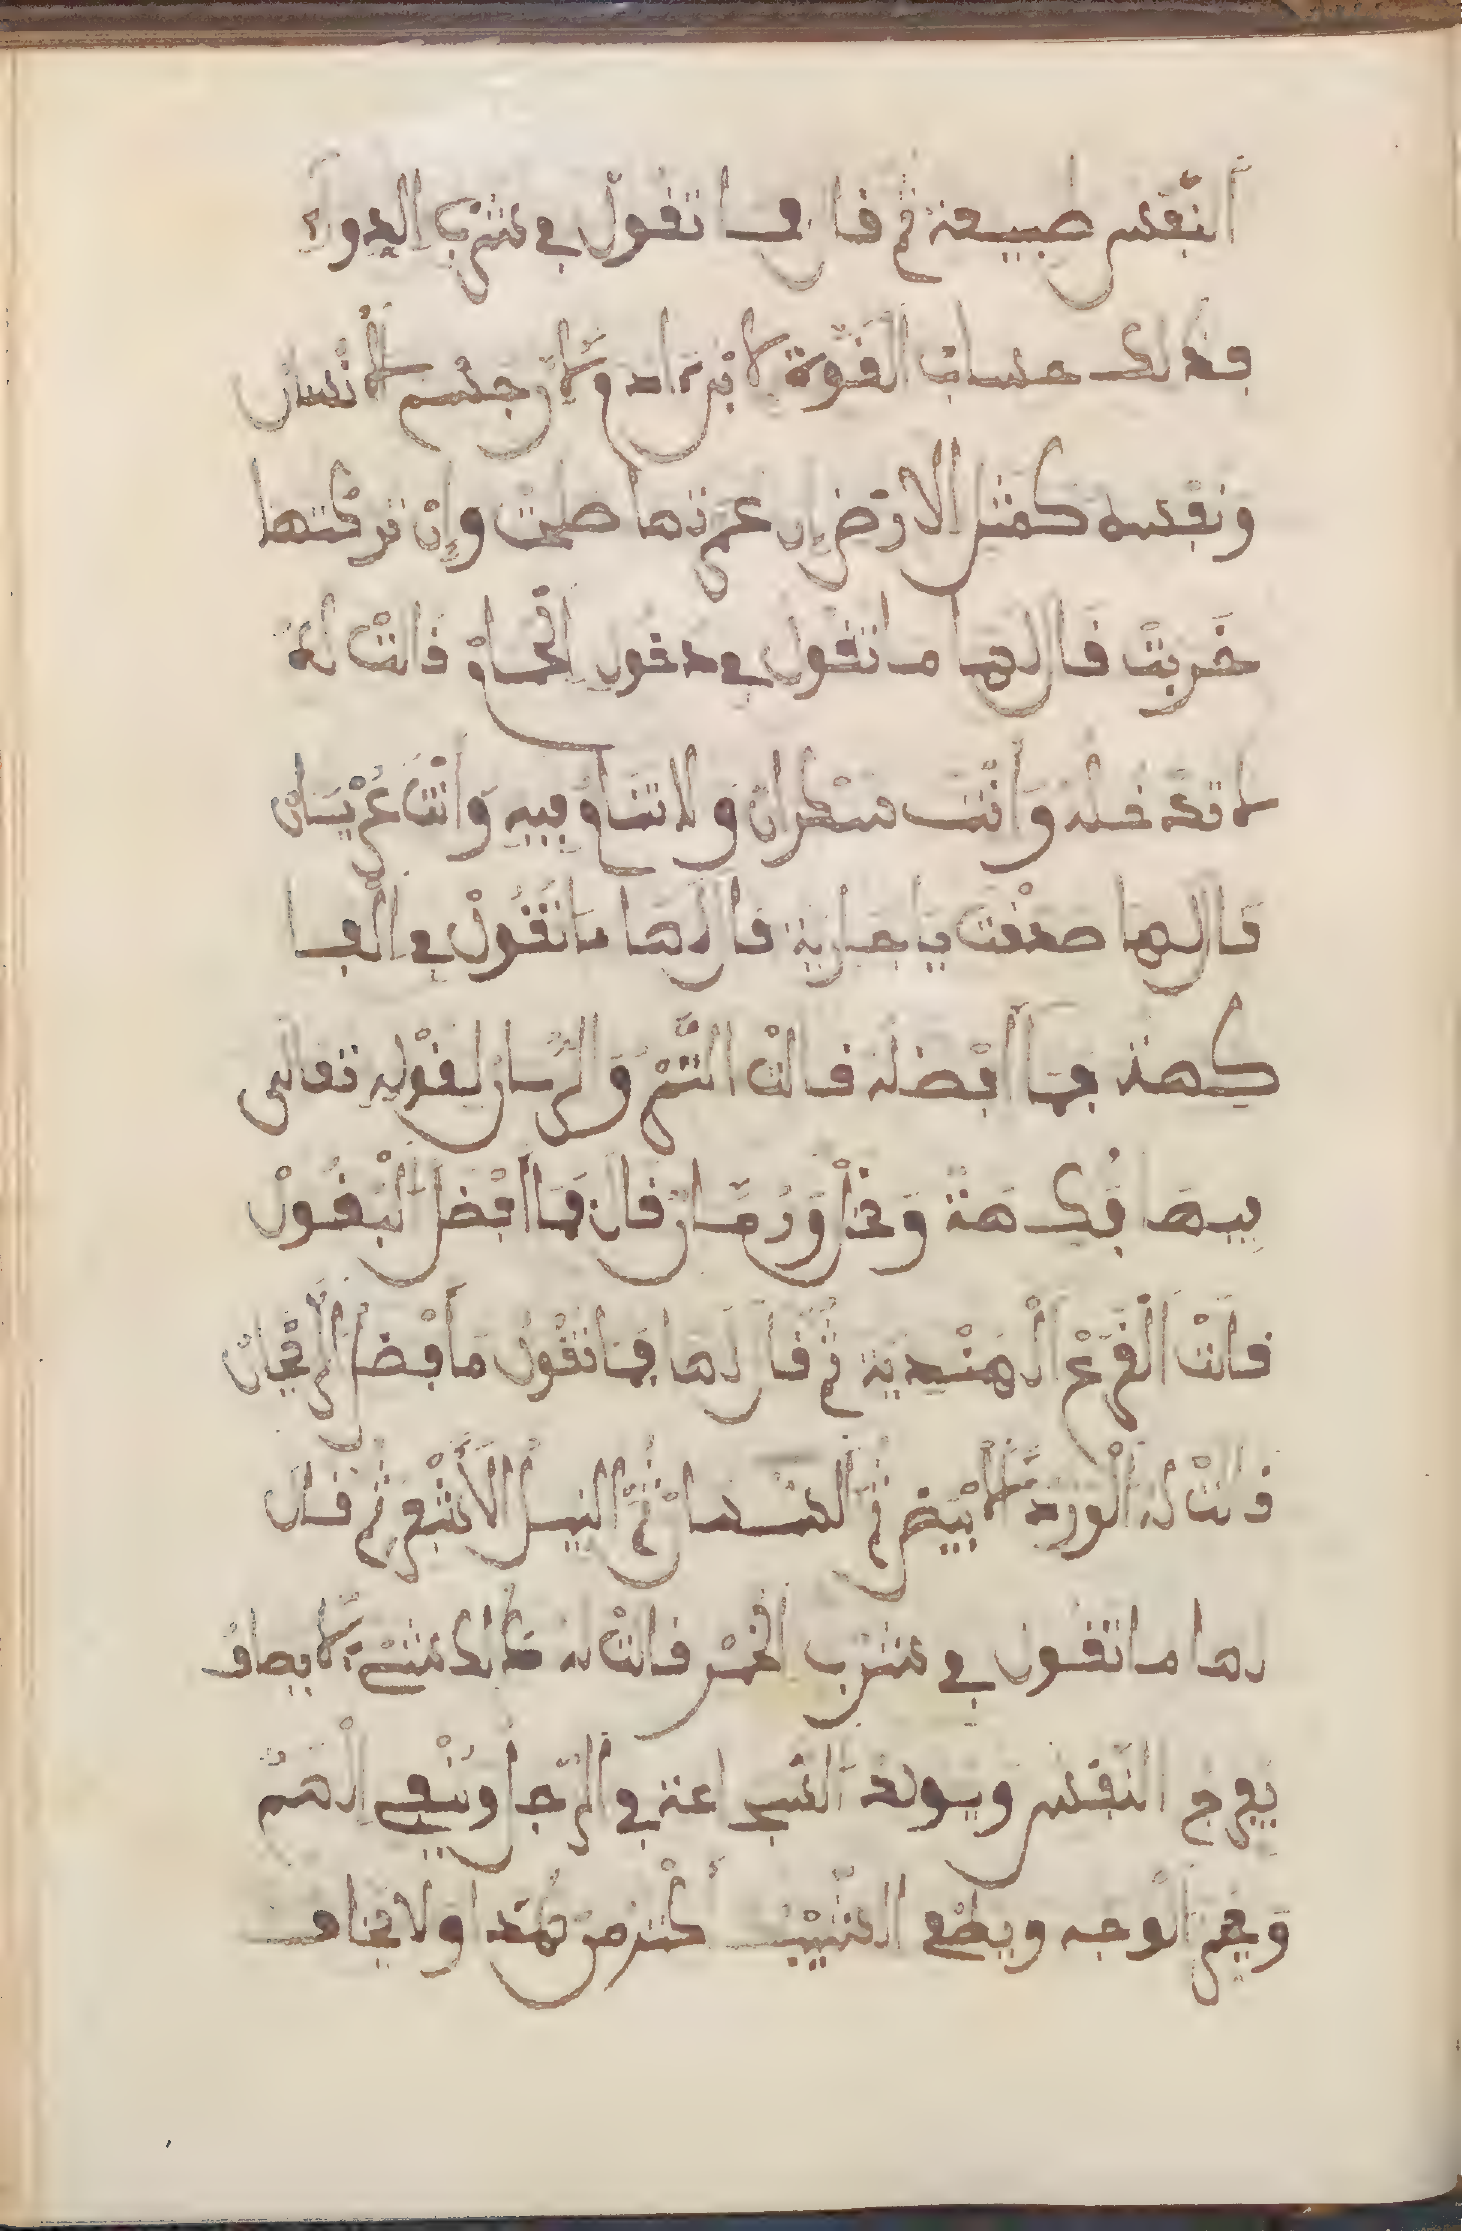 النّفس طبيعة ثم قال فما تقول في شرب الدواء
فذلك حساب القوة لا تزداد ولان جسم الانسان
ونفسه كمثل الارض ان عمرتها صلحت وان تركتها
خربت قال لها ما تقول في دخول الحمام قالت له
لا تدخله وانت سكران ولا تنام فيه وانت عريان
قال لها صدقت يا جارية قال لها ما تقول في الفا
كهة فما أفضله قالت التمر والرمان لقوله تعالى
فيها فكهة ونخل ورمّان قال فما أفضل البقول
قالت القرع الهندية ثم قال لها فما تقول ما أفضل الريحان
قالت له الورد الابيض ثم ثم النيل الأشقر ثم قال
لها ما تقول في شرب الخمر قالت له شيء لا يصلف
يفرج النفس ويولد الشجاعة في الرجل وينفي الهم
ويحمر الوجه ويطفي الشيب أكثر من هذا ولا يخاف